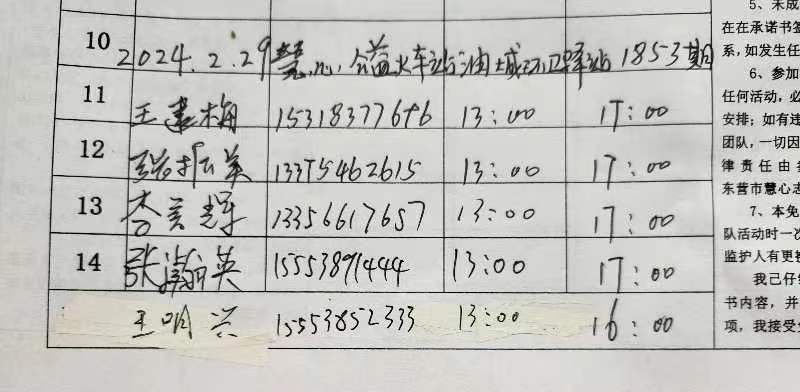 10 2024.2.29慧心公益火车站油城环卫驿站1853期
11 王建梅 15318377696 13:00 17:00
12 张振英 13375462615 13:00 17:00
13 李美辉 13356617657 13:00 17:00
14 张瀚英 15553891444 13:00 17:00
王明兴 15553852333 13:00 16:00
5、未成
在在承诺书签
系,如发生任
6、参加
任何活动,必
安排;如有违
团队,一切因
律责任由
东营市慧心志
7、本免
队活动时一次
监护人有更
我已仔
书内容,并
项,我接受